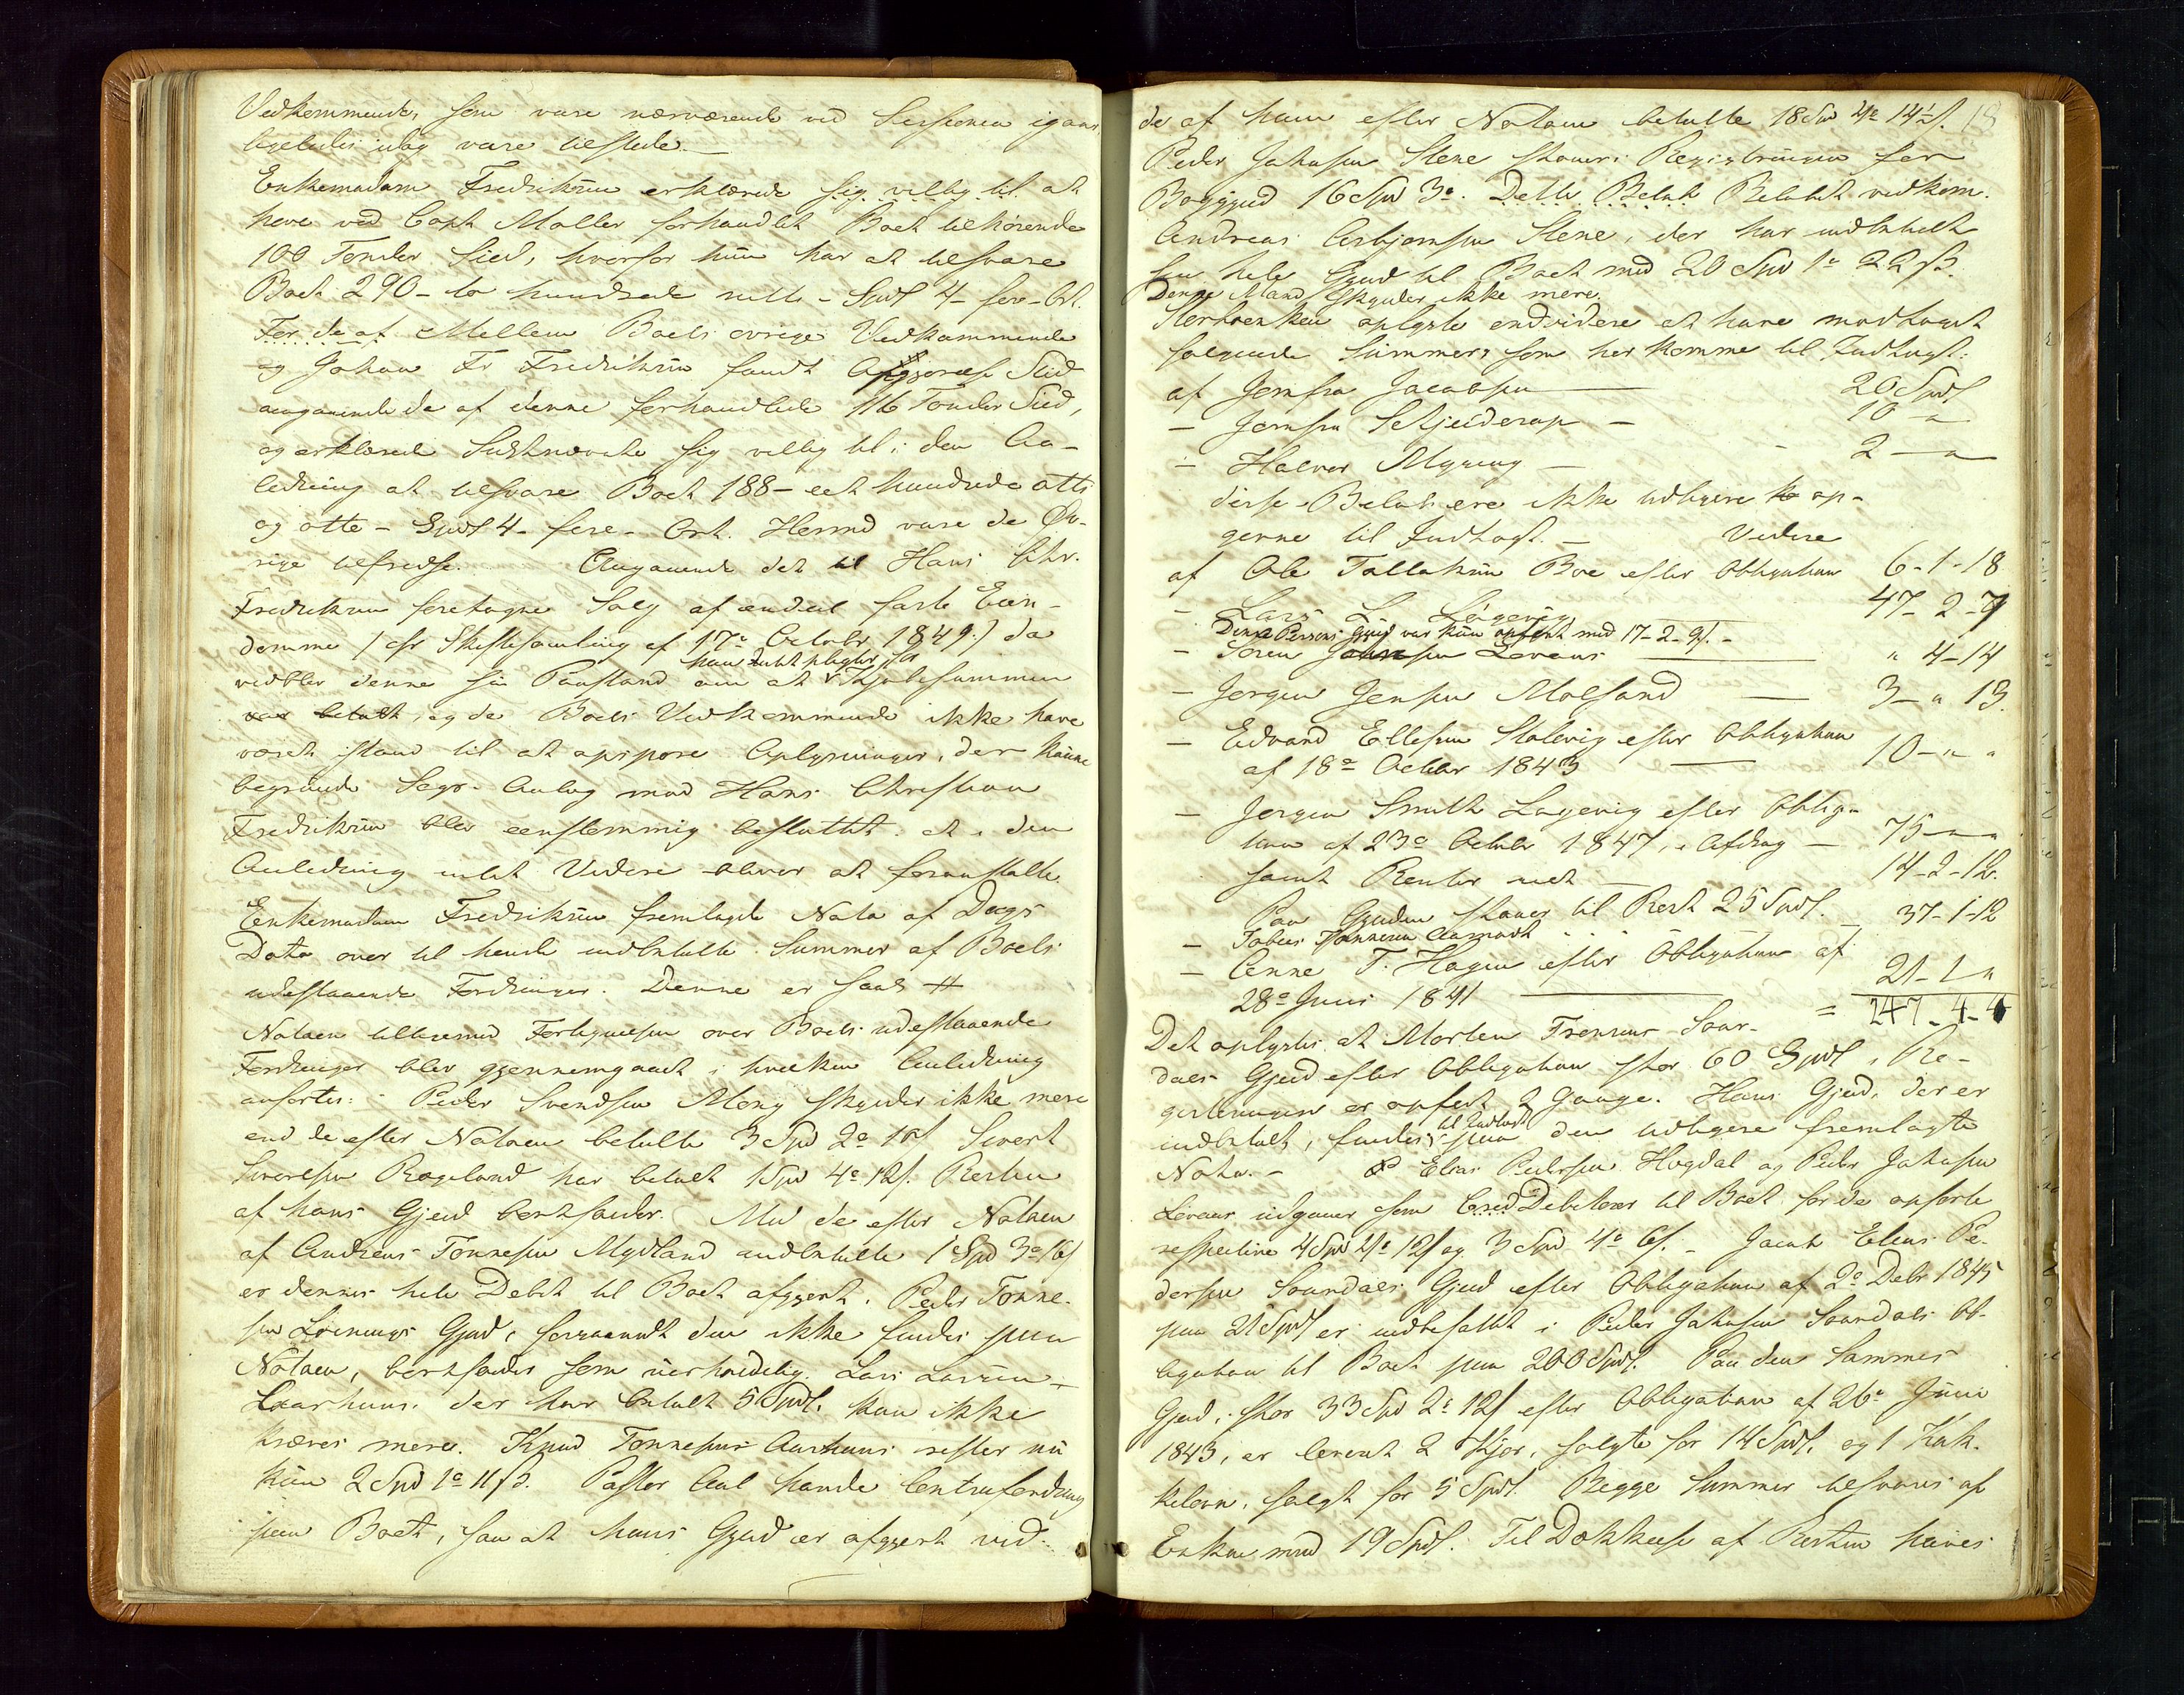 Vedkommende, som vare nærværende ved Sessionen igaar
ligeledes idag vare tilstede. —
Enkemadam Fredriksen erklærede sig villig til at
have ved Capt Møller forhandlet Boet tilhørende
100 Tønder Sild, hvorfor hun har at tilsvare
Boet 290 - to hundrede nitti - Spd 4 - fire - Ort.
Før de af Mellem Boets øvrige Vedkommende
og Johan Fr Fredriksen fandt Afgjørelse Sted
angaaende de af denne forhandlede 116 Tønder Sild,
og erklærede Sidstnævnte sig villig til i den An-
ledning at tilsvare Boet 188 - eet hundrede otti
og otte - Spd 4 - fire - Ort. Hermed vare de Øv-
rige tilfredse. Angaaende det til Hans Chr.
Fredriksen foretagne Salg af endeel faste Eien-
domme / cfr Skiftesamling af 17de October 1849 / da
han Intet skylder for
vedblev denne sin Paastand om at Kjøbesummen
var betalt, og da Boets Vedkommende ikke have
været istand til at opspore Oplysninger, der kunne
begrunde Sags-Anlæg mod Hans Christian
Fredriksen blev eenstemmig besluttet, at i den
Anledning intet Videre bliver at foranstalte.
Enkemadam Fredriksen fremlagde Nota af Dags
Dato over til hende indbetalte Summer af Boets
udestaaende Fordringer. Denne er saal. #
Notaen tilligemed Fortegnelsen over Boets udestaaende
Fordringer blev gjennemgaaet i hvilken Anledning
anførtes: Peder Svendsen Møng skylder ikke mere
end de efter Notaen betalte 3 Spd 2o 16 s Sivert
Sivertsen Rogeland har betalt 1 Spd 4o 12 s. Resten
af hans Gjeld bortfalder. Med de efter Notaen
af Andreas Tønnesen Mydland indbetalte 1 Spd 3o 16 s
er dennes hele Debet til Boet afgjort. Peder Tønne-
sen Løinings Gjeld, foruævndt den ikke findes paa
Notaen, bortfalder som uerholdelig. Lars Larsen
Laarhuus, der har betalt 5 Spd. kan ikke
kræves mere. Knud Tønnesens Aarhuus rester nu
kun 2 Spd 1o 11 ß. Pastor Aal havde Contrafordring
paa Boet, saa at hans Gjeld er afgjort ved
18
de af ham efter Notaen betalte 18 Spd 4o 14½ s.
Peder Jakobsen Stene staaer i Registreringen for
Boggjeld 16 Spd 3o. Dette Beløb Beløbet vedkom.
Andreas Asbjørnsen Stene, der har indbetalt
sin hele Gjeld til Boet med 20 Spd 1o 22 ß.
Denne Mand skylder ikke mere.
Sterboenken oplyste endvidere at have modtaget
følgende Summer, som her komme til Indtægt:
af Jomfru Jacobsen — 20 Spd
— Jomfru Schjelderup — 10 — "
— Halvor Myring — 2 — "
disse Beløb ere ikke tidligere op-
gevne til Indtægt. — Videre
af Ole Tollaksen Boe efter Obligation 6 - 1 - 18
— Lars L. Løgevig 47 - 2 - 7
Denne Persons Gjeld var kun opført med 17 - 2 - 9 s. -
— Søren Jensen Levans — " 4 - 14
— Jørgen Jensen Molsand — 3 - " 13.
— Edvard Ellefsen Stolevig efter Obligation
af 18de October 1843 — 10 - " "
— Jørgen Smith Løgevig efter Obliga-
tion af 23de October 1847, i Afdrag — 75 - " "
samt Renter med — 14 - 2 - 12.
Paa Gjelden staaer til Rest 25 Spd.
— Tobias Tønnesen Aamodt — 37 - 1 - 12
— Anne T. Hagen efter Obligation af
28de Juni 1841 — 21 - 1 "
= 247 - 4 - 4
Det oplystes, at Morten Tronsens Soar-
dals Gjeld efter Obligation stor 60 Spd, i Re-
gistreringen er opført 2 Gange. Hans Gjeld, der er
til Indtægt
indbetalt, findes paa den tidligere fremlagte
Nota. - Elias Pedersen Hogdal og Peder Jakobsen
Levans udgaaer som Debitorer til Boet for de opførte
respective 4 Spd 4o 12 s og 3 Spd 4o 6 s. - Jacob Elias Pe-
dersen Soandals Gjeld efter Obligation af 2de Debr 1845
paa 21 Spd er indbefattet i Peder Jakobsen Soandals Ob-
ligation til Boet paa 200 Spd. Paa den Sammes
Gjeld, stor 33 Spd 2o 12 s efter Obligation af 26de Juni
1843, er leveret 2 Kjør, solgte for 14 Spd. og 1 Kak-
kelovn, solgt for 5 Spd. Begge Summer tilsvares af
Enken med 19 Spd. Til Dækkelse af Resten haves